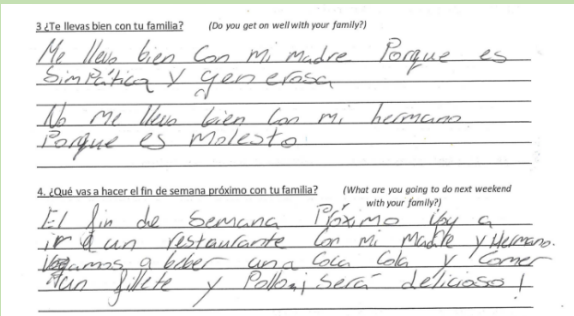 3 ¿Te llevas bien con tu familia? (Do you get on well with your family?)
Me llevo bien con mi madre Porque es
Simpática y generosa
No me llevo bien con mi hermano
Porque es molesto
4. ¿Qué vas a hacer el fin de semana próximo con tu familia? (What are you going to do next weekend
with your family?)
El fin de semana Próximo voy a
ir a un restaurante con mi Madre y Hermano.
Vamos a beber una Coca Cola y Comer
un fillete y Pollo ¡ Será delicioso !